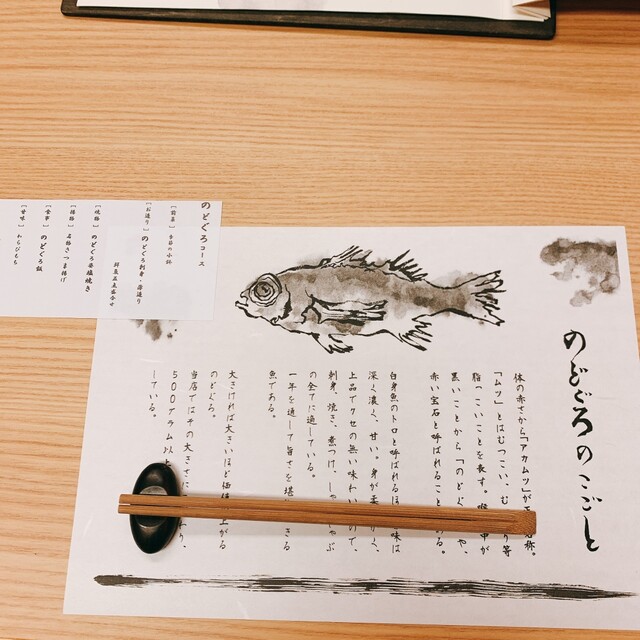 のどぐろコース
［前菜］季節の小鉢
［お造り］のどぐろ刺身・薄造り
鮮魚五点盛合せ
［焼物］のどぐろ姿塩焼き
［揚物］名物さつま揚げ
［食事］のどぐろ飯
［甘味］わらびもち
のどぐろのこごと
体の赤さから「アカムツ」が
名称。
「ムツ」とはむつこい、む
り等
脂っこいことを表す。喉
中が
黒いことから「のどぐ
や、
赤い宝石と呼ばれること
める。
白身魚のトロと呼ばれるほ
味は
深く濃く、甘い。身が柔
かく、
上品でクセの無い味わい
ので、
刺身、焼き、煮つけ、しゃ
しゃぶ
の全てに適している。
一年を通して旨さを堪
きる
魚である。
大きければ大きいほど価値
上がる
のどぐろ。
当店ではその大きさに
わり、
500グラム以
している。